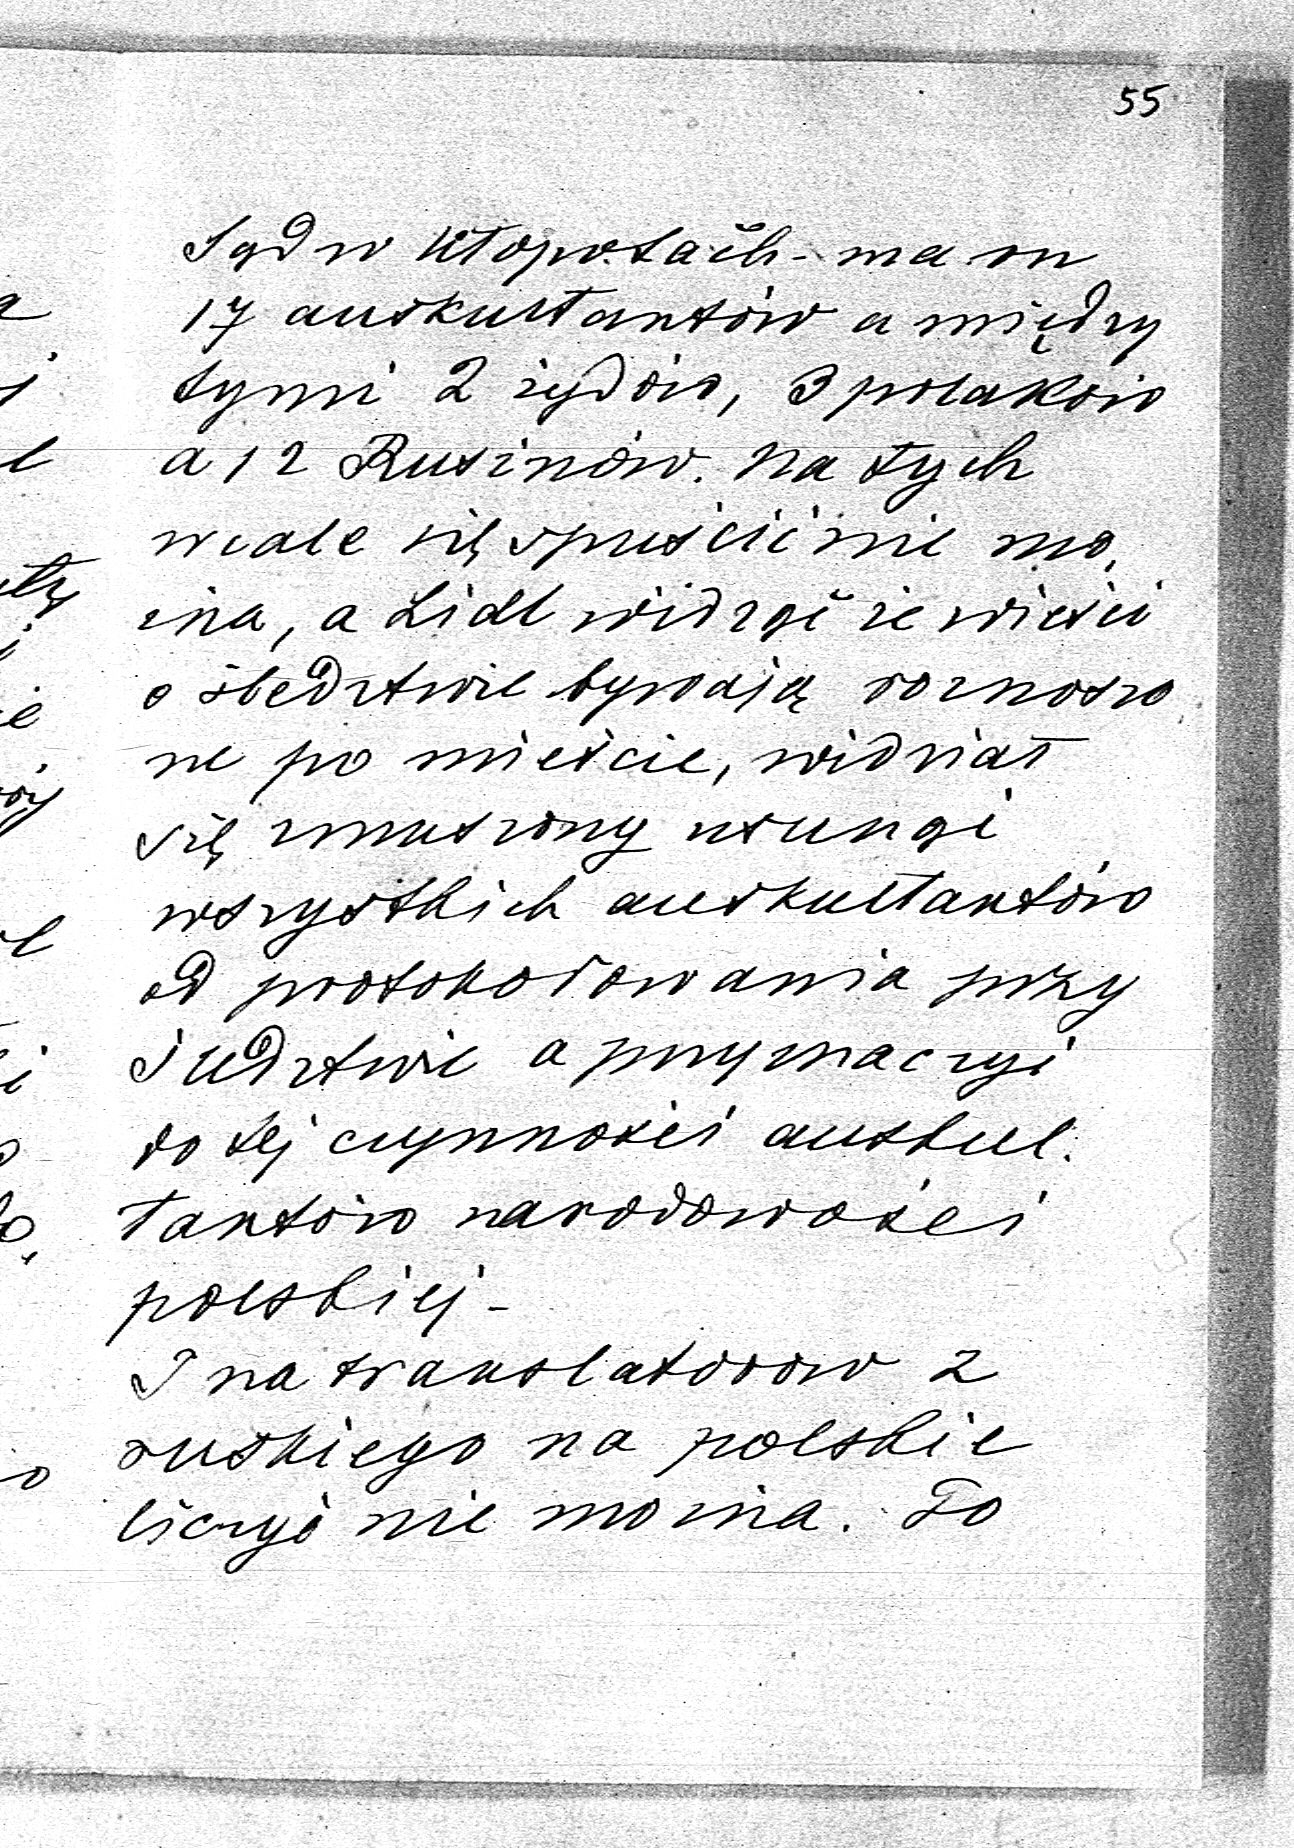 55
Sąd w kłopotach - ma on
17 auskultantów a między
tymi 2 żydów, 3 polaków
a 12 Rusinów. Na tych
wcale się spuścić nie mo,
żna, a Lidl widząc że wieści
o śledztwie bywają roznoszo,
ne po mieście, widział
się zmuszony usunąć
wszystkich auskultantów
od protokołowania przy
śledztwie a przyznaczyć
do tej czynności auskul.
tantów narodowości
polskiej -
I na translatorów z
ruskiego na polskie
liczyć nie można. To